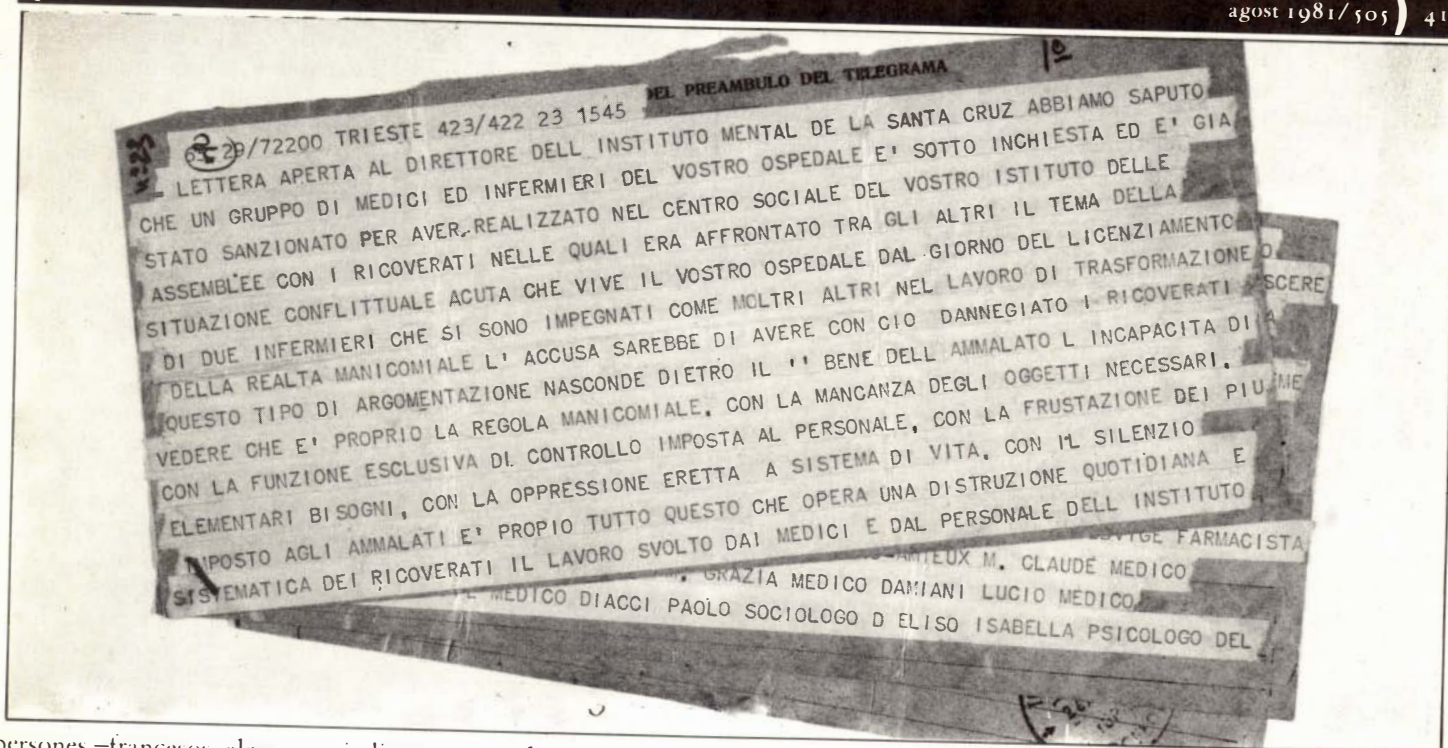 agost 1981/505) 41
DEL PREAMBULO DEL TELEGRAMA
29/72200 TRIESTE 423/422 23 1545
LETTERA APERTA AL DIRETTORE DELL INSTITUTO MENTAL DE LA SANTA CRUZ ABBIAMO SAPUTO
CHE UN GRUPPO DI MEDICI ED INFERMIERI DEL VOSTRO OSPEDALE E' SOTTO INCHIESTA ED E' GIA
STATO SANZIONATO PER AVER REALIZZATO NEL CENTRO SOCIALE DEL VOSTRO ISTITUTO DELLE
ASSEMBLEE CON I RICOVERATI NELLE QUALI ERA AFFRONTATO TRA GLI ALTRI IL TEMA DELLA
SITUAZIONE CONFLITTUALE ACUTA CHE VIVE IL VOSTRO OSPEDALE DAL GIORNO DEL LICENZIAMENTO
DI DUE INFERMIERI CHE SI SONO IMPEGNATI COME MOLTRI ALTRI NEL LAVORO DI TRASFORMAZIONE
DELLA REALTA MANICOMIALE L' ACCUSA SAREBBE DI AVERE CON CIO DANNEGIATO I RICOVERATI
QUESTO TIPO DI ARGOMENTAZIONE NASCONDE DIETRO IL '' BENE DELL AMMALATO L INCAPACITA DI
VEDERE CHE E' PROPRIO LA REGOLA MANICOMIALE, CON LA MANCANZA DEGLI OGGETTI NECESSARI,
CON LA FUNZIONE ESCLUSIVA DI CONTROLLO IMPOSTA AL PERSONALE, CON LA FRUSTAZIONE DEI PIU
ELEMENTARI BISOGNI, CON LA OPPRESSIONE ERETTA A SISTEMA DI VITA, CON IL SILENZIO
IMPOSTO AGLI AMMALATI E' PROPIO TUTTO QUESTO CHE OPERA UNA DISTRUZIONE QUOTIDIANA E
SISTEMATICA DEI RICOVERATI IL LAVORO SVOLTO DAI MEDICI E DAL PERSONALE DELL INSTITUTO
FARMACISTA
M. CLAUDE MEDICO
GRAZIA MEDICO DAMIANI LUCIO MEDICO
MEDICO DIACCI PAOLO SOCIOLOGO D ELISO ISABELLA PSICOLOGO DEL